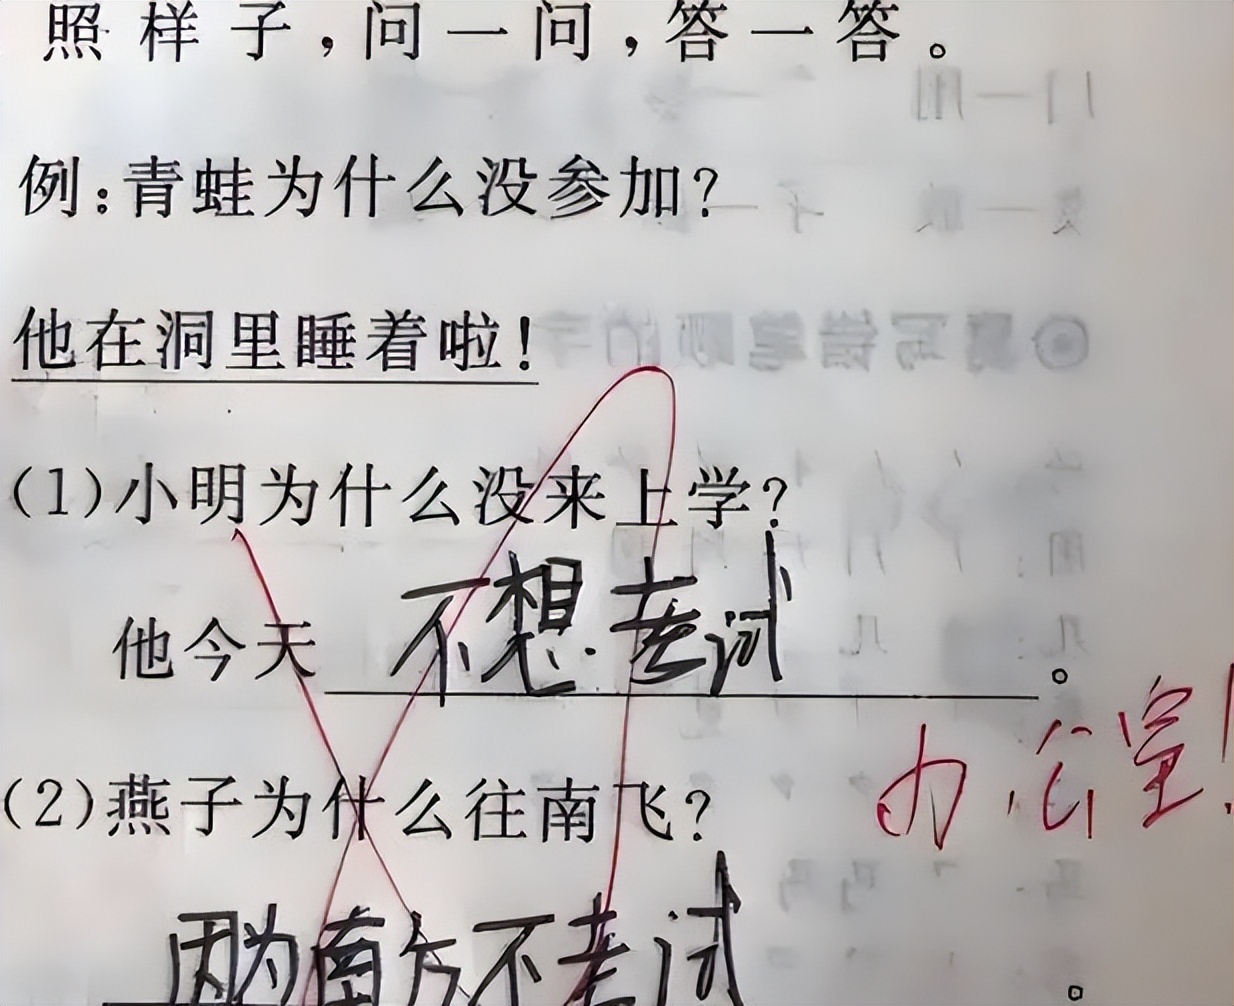 照样子，问一问，答一答。
例：青蛙为什么没参加？
他在洞里睡着啦！
(1)小明为什么没来上学？
他今天不想考试。
(2)燕子为什么往南飞？
办公室！
因为南方不考试。